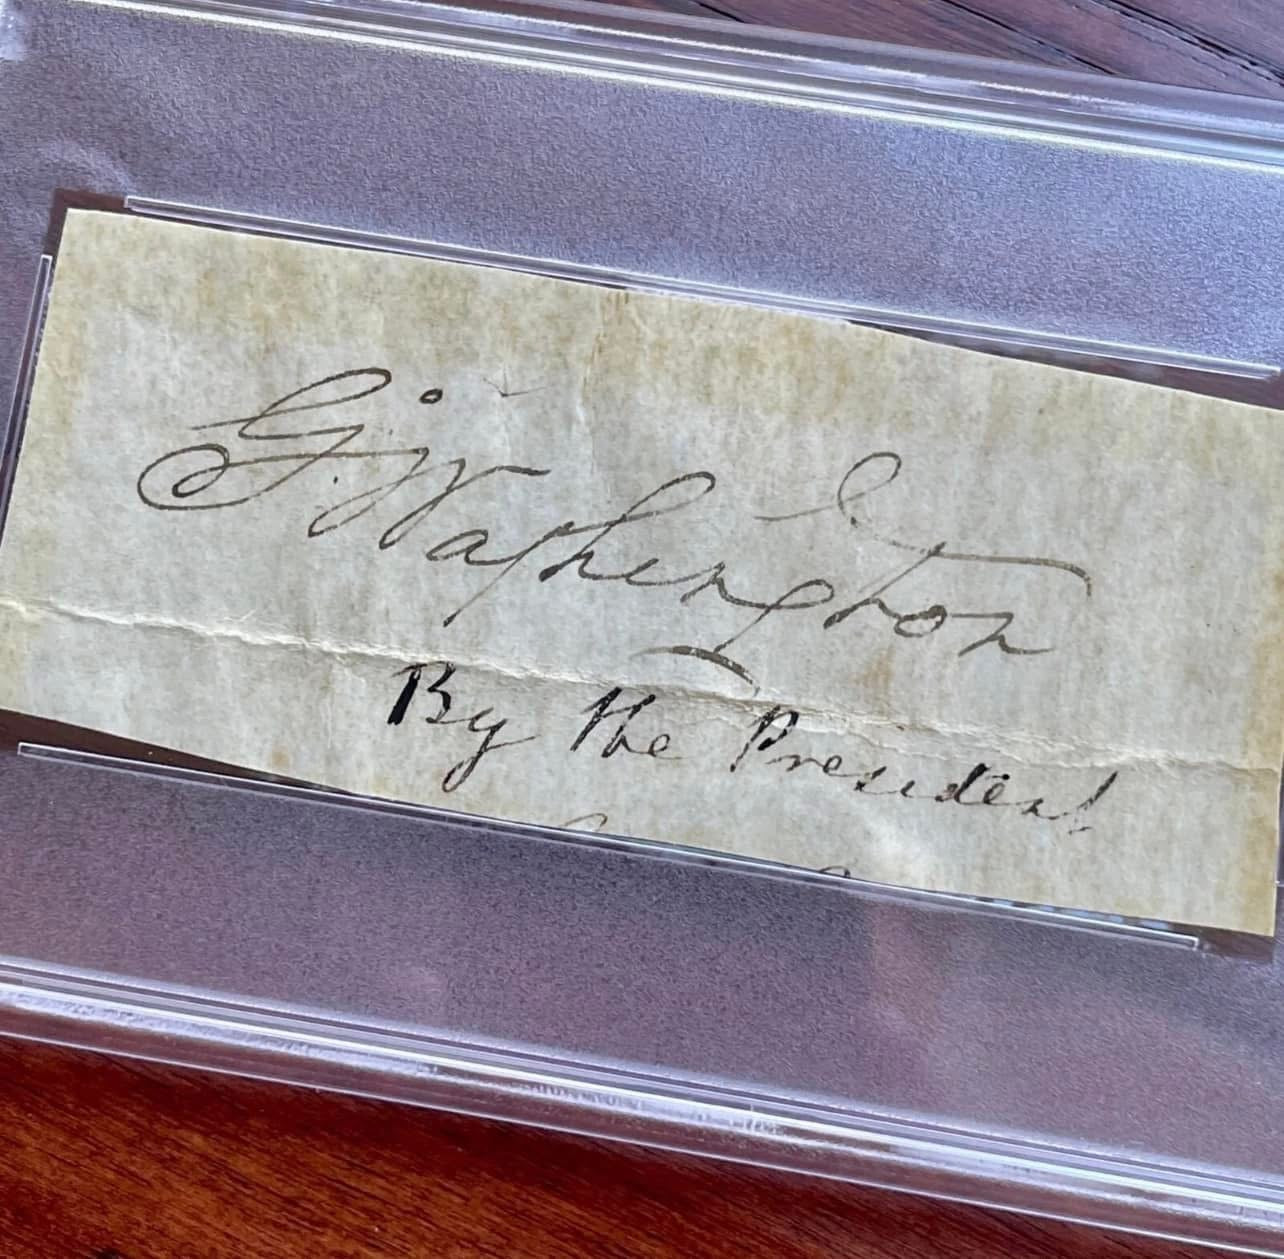 G. Washington
By the President